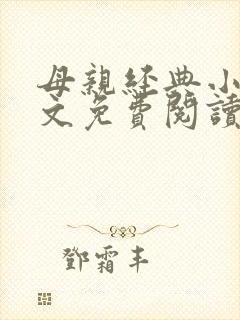 母親經典小
文免費閱讀
鄧霜丰